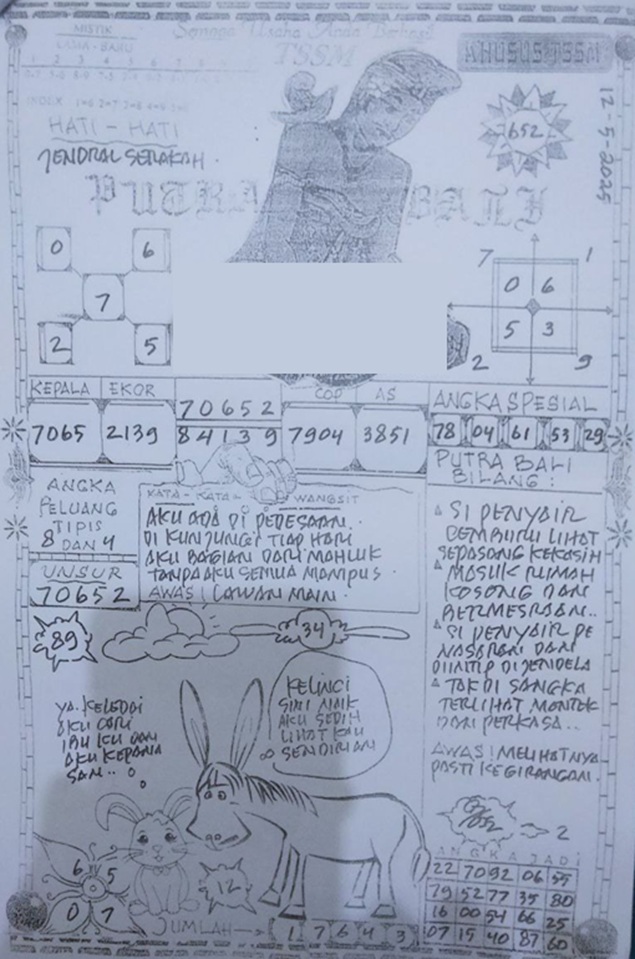 MISTIK
LAMA - BARU
Semoga Usaha Anda Berhasil
TSSM
KHUSUS TSSM
12-5-2025
1 2 3 4 5 6 7 8 9
INDEX
HATI - HATI
JENDRAL SERAKAH.
652
PUTRA BALI
0 6
7
2 5
7 1
0 6
5 3
2 9
KEPALA EKOR
7065 2139
70652
84139
COP AS
7904 3851
ANGKA SPESIAL
78 04 61 53 29
ANGKA
PELUANG
TIPIS
8 DAN 4
UNSUR
70652
KATA - KATA - WANGSIT
AKU ADA DI PEDESAAN..
DI KUNJUNGI TIAP HARI
AKU BAGIAN DARI MAHLUK
TANPA AKU SEMUA MAMPUS.
AWAS! LAWAN MAIN.
PUTRA BALI
BILANG :
SI PENYAIR
CEMBURU LIHAT
SEPASANG KEKASIH
MASUK RUMAH
KOSONG DAN
BERMESRAAN..
SI PENYAIR PE
NASARAN DAN
DIINTIP DI JENDELA
TAK DI SANGKA
TERLIHAT MONTOK
DAN PERKASA..
AWAS! MELIHATNYA
PASTI KEGIRANGAN.
89
34
YA. KELEDAI
AKU CARI
IBU KU DAN
AKU KEPANA
SAN..
KELINCI
SINI NAIK
AKU SEDIH
LIHAT KAU
SENDIRIAN
2
6 5
0 7
12
JUMLAH
1 7 6 4 3
ANGKA JADI
22 70 92 06 55
79 52 77 35 80
16 00 54 66 25
07 15 40 87 60